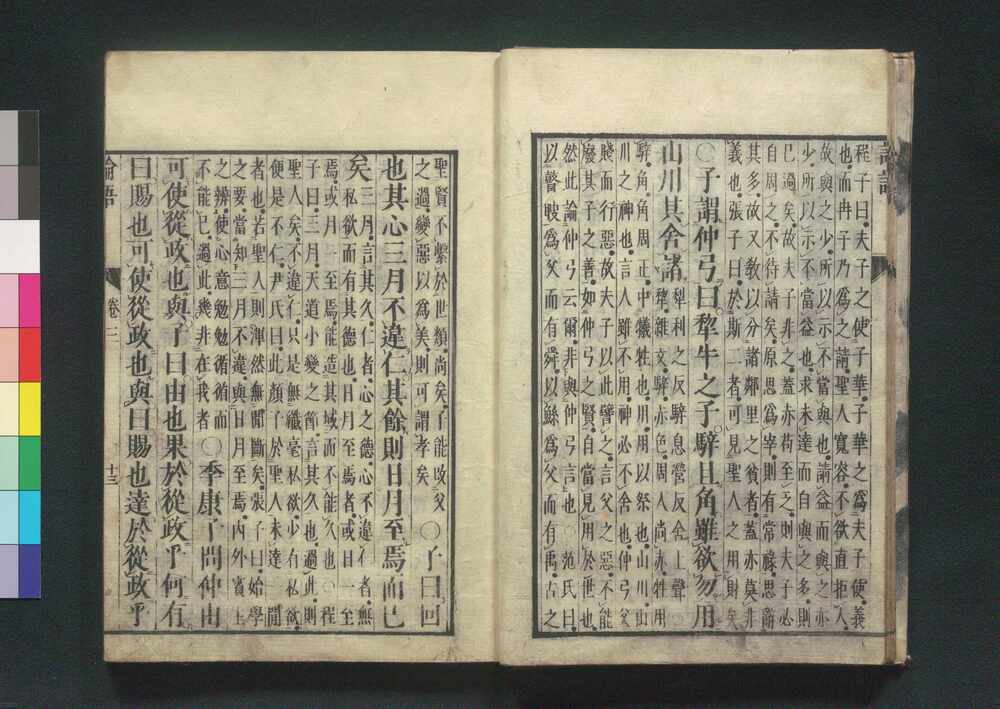 程子曰夫子之使子華子華之爲夫子使義
也而冉子乃爲之請聖人寬容不欲直拒人
故與之少所以示不當與也請益而與之亦
少所以示不當益也求未達而自與之多則
已過矣故夫子非之蓋亦苟至乏則夫子必
自周之不待請矣原思爲宰則有常祿思辭
其多故又敎以分諸鄰里之貧者蓋亦莫非
義也張子曰於斯二者可見聖人之用財矣
〇子謂仲弓曰犂牛之子騂且角雖欲勿用
山川其舍諸
犂利之反騂息營反舍上聲〇
犂雜文騂赤色周人尚赤牲用
騂角角周正中犧牲也用用以祭也山川山
川之神也言人雖不用神必不舍也仲弓父
賤而行惡故夫子以此譬之言父之惡不能
廢其子之善如仲弓之賢自當見用於世也
然此論仲弓云爾非與仲弓言也〇范氏曰
以瞽瞍爲父而有舜以鯀爲父而有禹古之
聖賢不繫於世類尚矣子能改父
之過變惡以爲美則可謂孝矣
〇子曰回
也其心三月不違仁其餘則日月至焉而已
矣
三月言其久仁者心之德心不違仁者無
私欲而有其德也日月至焉者或日一至
焉或月一至焉能造其域而不能久也〇程
子曰三月天道小變之節言其久也過此則
聖人矣不違仁只是無纖毫私欲少有私欲
便是不仁尹氏曰此顏子於聖人未達一閒
者也若聖人則渾然無閒斷矣張子曰始學
之要當知三月不違與日月至焉內外賓主
之辨使心意勉勉循循而
不能已過此幾非在我者
〇季康子問仲由
可使從政也與子曰由也果於從政乎何有
曰賜也可使從政也與曰賜也達於從政乎
論語
卷三
十三